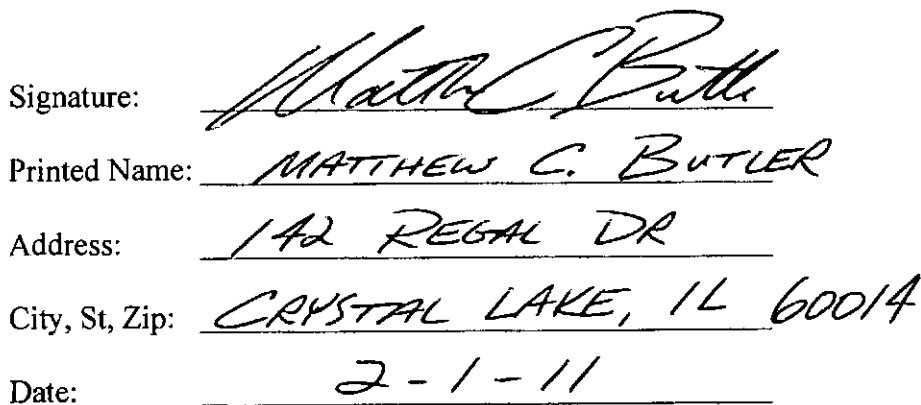 Signature: Matth C Butle
Printed Name: MATTHEW C. BUTLER
Address: 142 REGAL DR
City, St, Zip: CRYSTAL LAKE, IL 60014
Date: 2-1-11